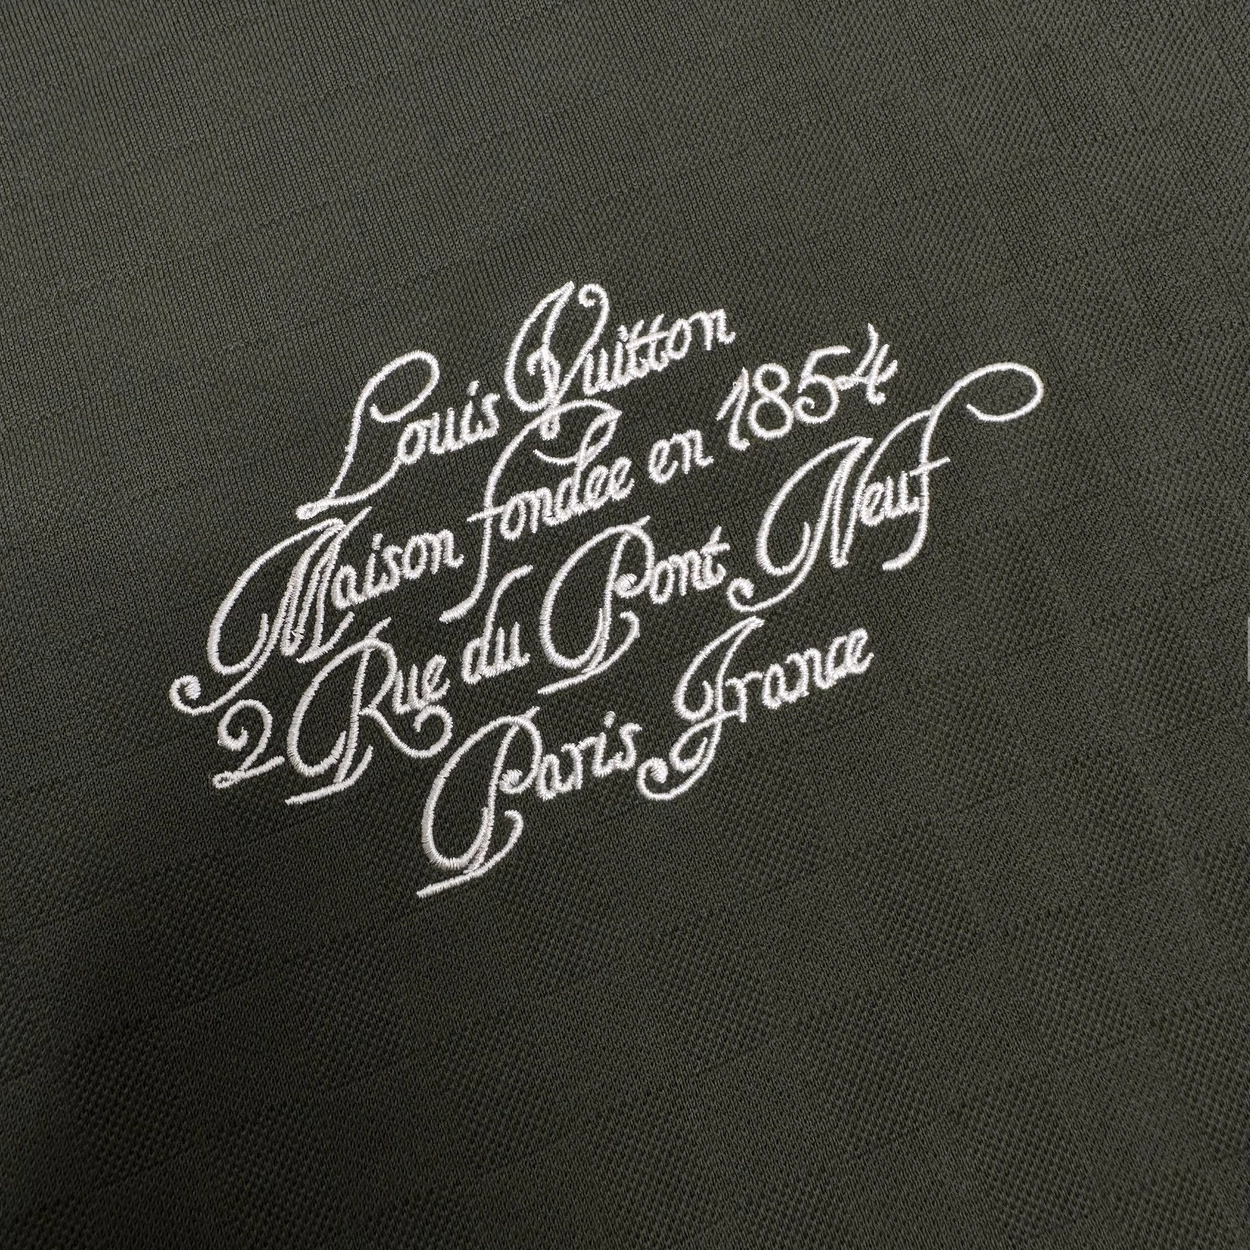 Louis Vuitton
Maison fondée en 1854
2 Rue du Pont Neuf
Paris France